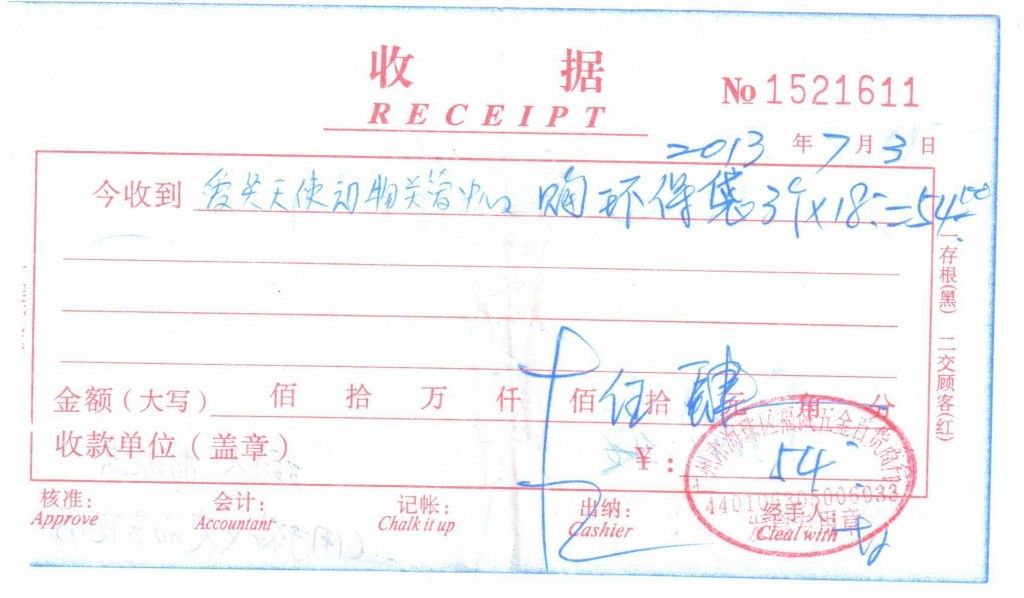 收据
RECEIPT
№ 1521611
2013 年 7 月 3 日
今收到 爱关天使动物关爱中心 购环保袋 3个×18=54.00
一存根(黑) 二交顾客(红)
金额(大写) 佰 拾 万 仟 佰 伍拾 肆元 角 分
收款单位(盖章) ¥: 54
4401053050060
核准: 会计: 记帐: 出纳: 经手人
Approve Accountant Chalk it up Cashier Cleal with